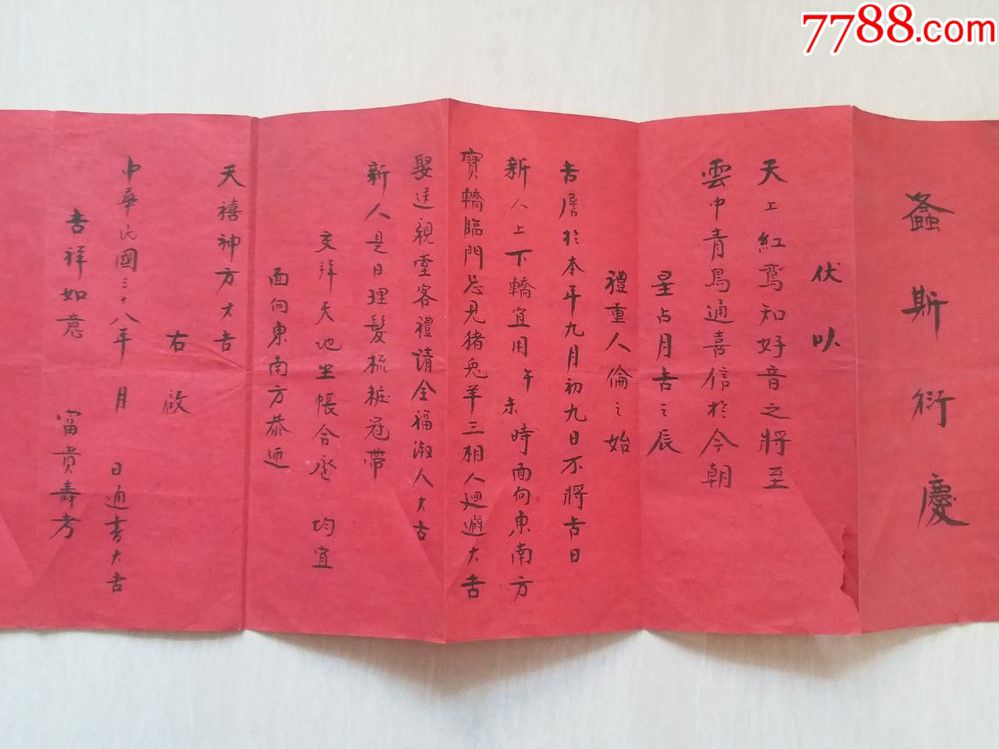 7788.com
螽斯衍慶
伏以
天上紅鸞知好音之將至
雲中青鳥通喜信於今朝
星占月吉之辰
禮重人倫之始
吉居於本年九月初九日不將吉日
新人上下轎宜用午未時面向東南方
寶轎臨門忌見猪兔羊三相人迴避大吉
娶送親堂客禮請全福淑人大吉
新人是日理髮梳粧冠帶
交拜天地坐帳合巹 均宜
面向東南方恭迎
天禧神方大吉
右啟
中華民國三十八年 月 日通書大吉
吉祥如意 富貴壽考